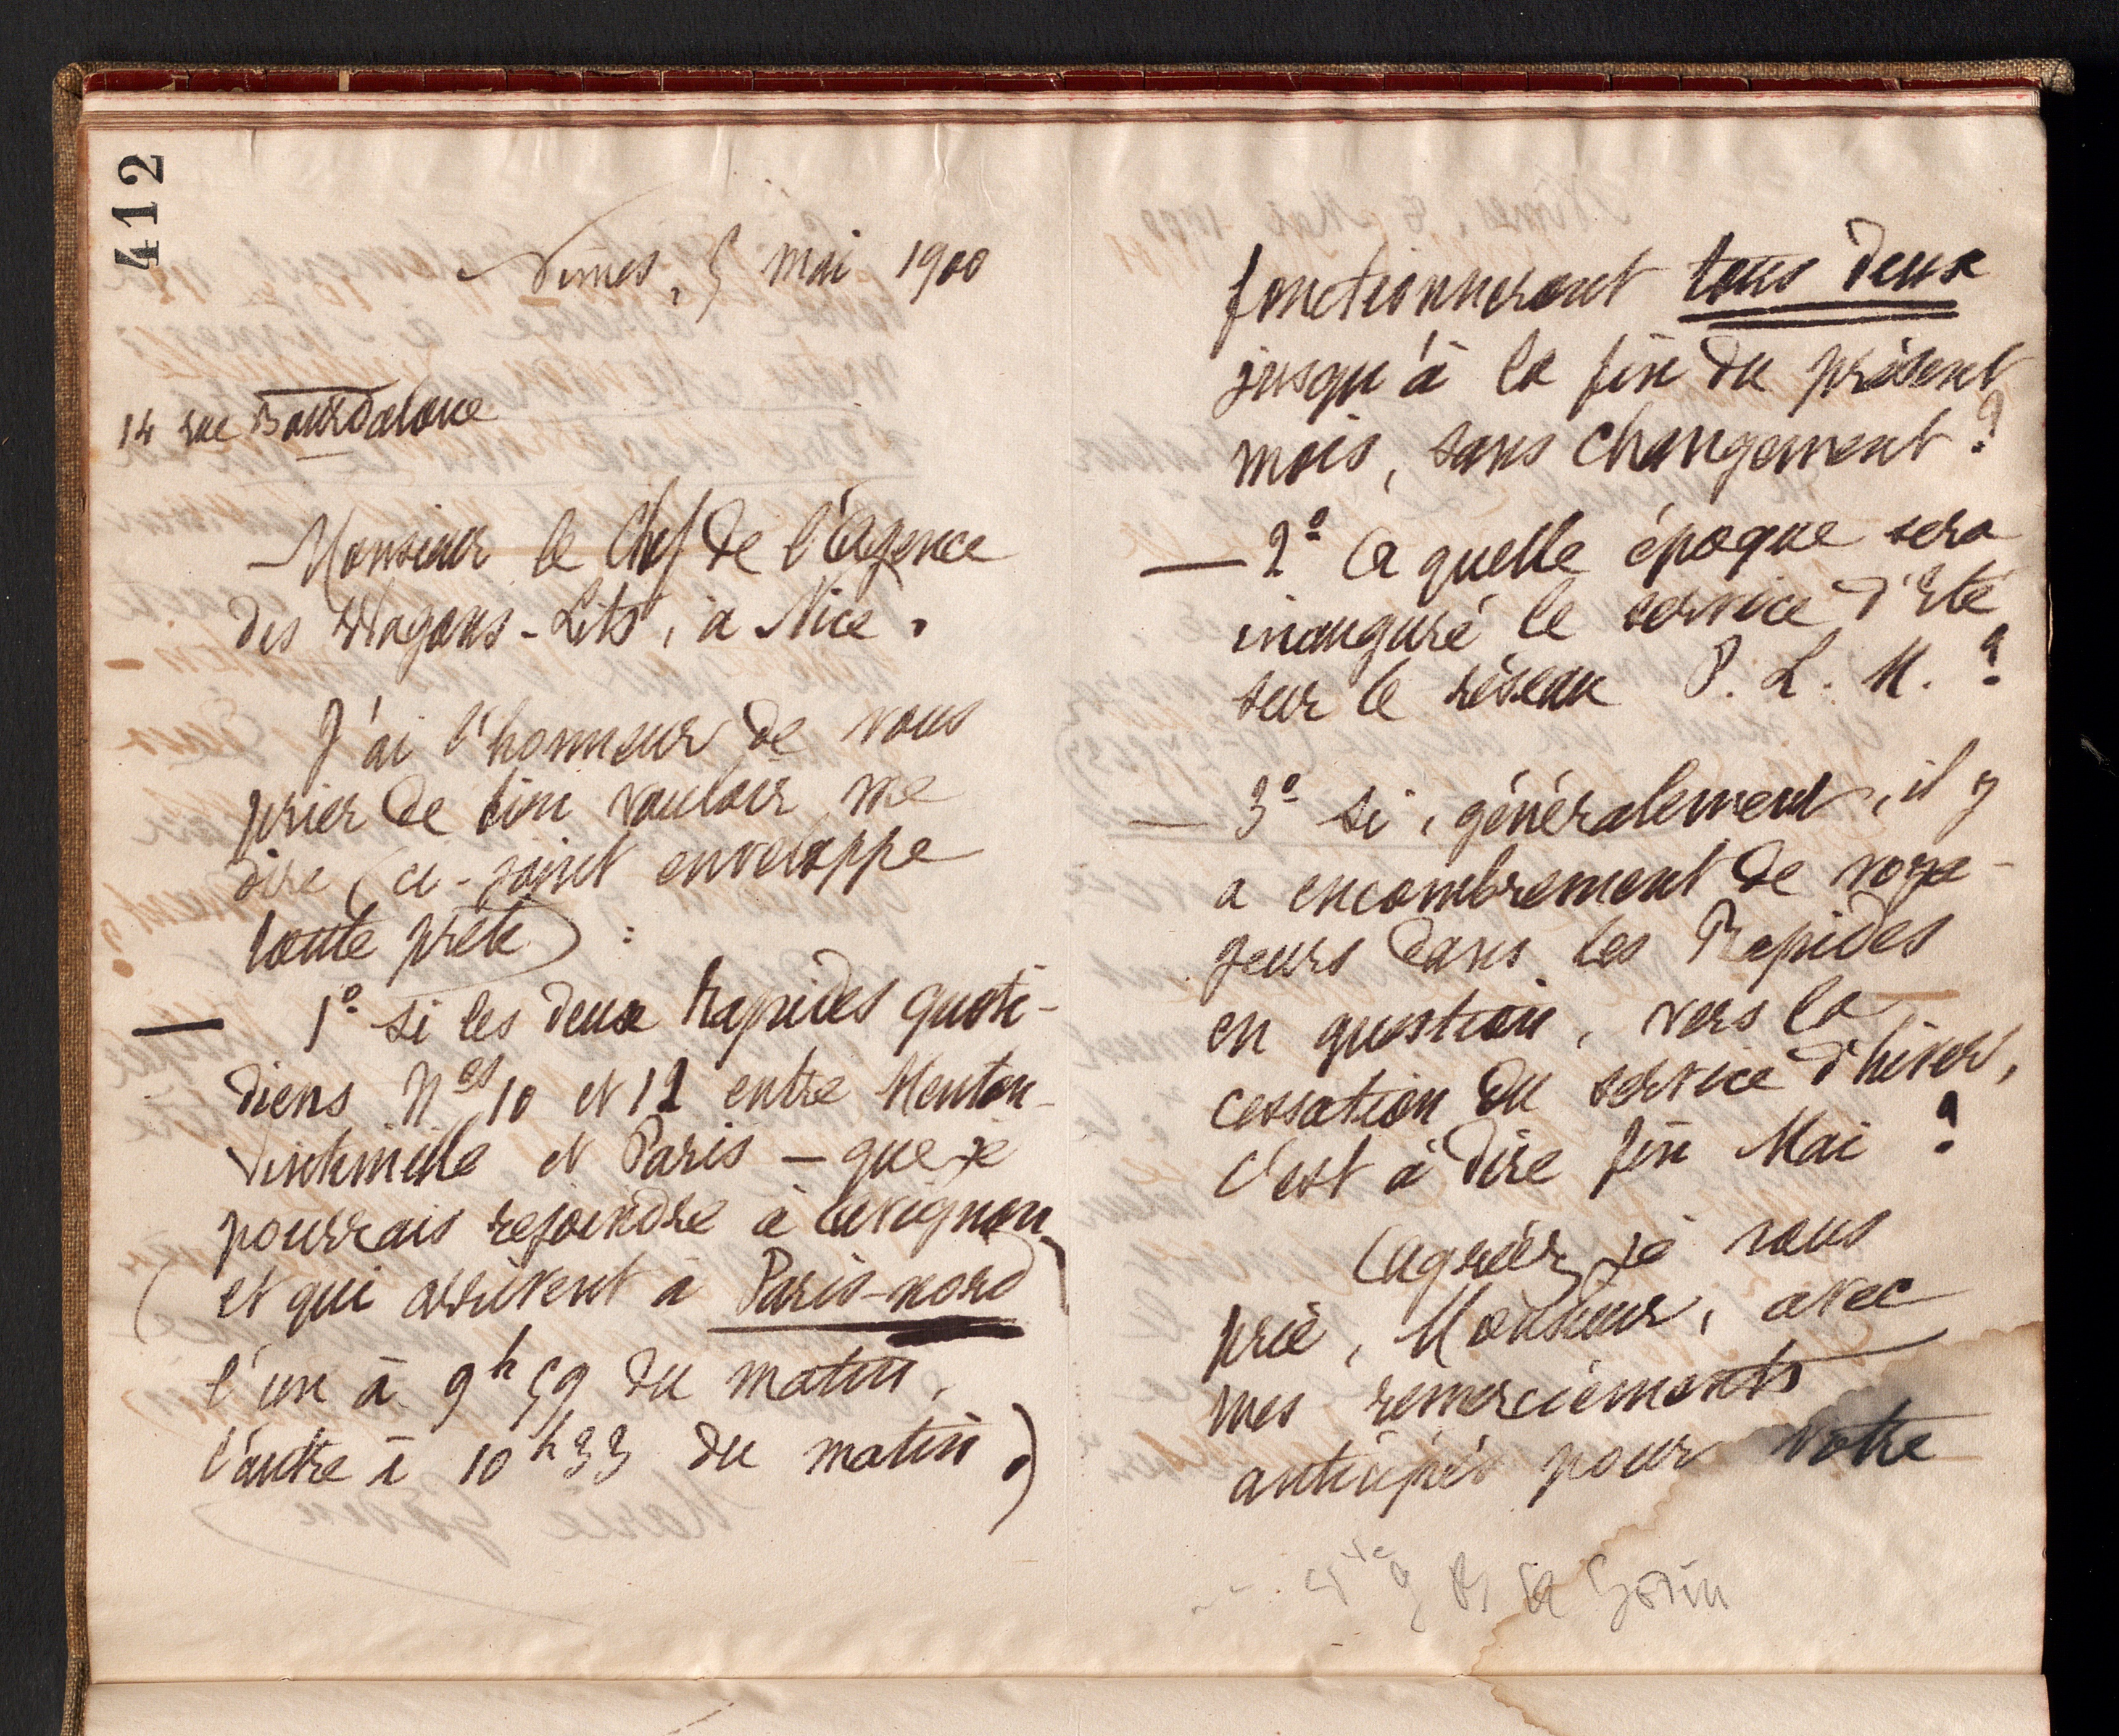 412
Nîmes, 5 mai 1900
14 rue Bourdaloue
Monsieur le Chef de l'Agence
des Wagons-Lits, à Nice.
J'ai l'honneur de vous
prier de bien vouloir me
dire (ci-joint enveloppe
toute prête) :
— 1º si les deux Rapides quoti-
diens Nos 10 et 12 entre Menton-
Vintimille et Paris — que je
pourrais rejoindre à Avignon
(et qui arrivent à Paris-nord
l'un à 9h 59 du matin,
l'autre à 10h 33 du matin.)
fonctionneront tous deux
jusqu'à la fin du présent
mois, sans changement ?
— 2º A quelle époque sera
inauguré le service d'Eté
sur le réseau P. L. M. ?
— 3º si, généralement, il y
a encombrement de voya-
geurs dans les Rapides
en question, vers la
cessation du service d'hiver,
c'est à dire fin Mai ?
Agréez, je vous
prie, Monsieur, avec
mes remerciements
anticipés pour votre
Godin